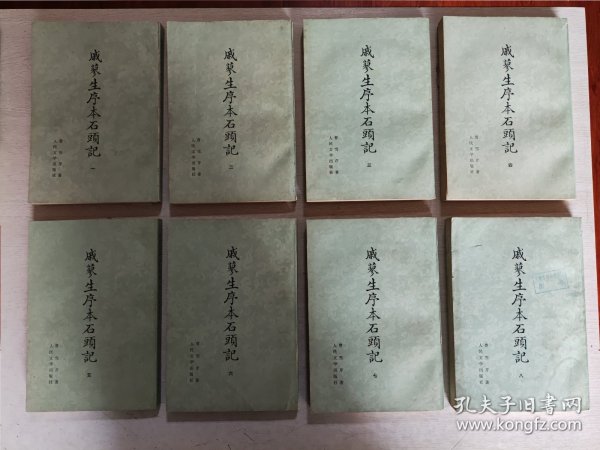 戚蓼生序本石頭記
曹雪芹著
人民文学出版社
一
戚蓼生序本石頭記
曹雪芹著
人民文学出版社
二
戚蓼生序本石頭記
曹雪芹著
人民文学出版社
三
戚蓼生序本石頭記
曹雪芹著
人民文学出版社
四
戚蓼生序本石頭記
曹雪芹著
人民文学出版社
五
戚蓼生序本石頭記
曹雪芹著
人民文学出版社
六
戚蓼生序本石頭記
曹雪芹著
人民文学出版社
七
戚蓼生序本石頭記
曹雪芹著
人民文学出版社
八
孔夫子旧书网
www.kongfz.com